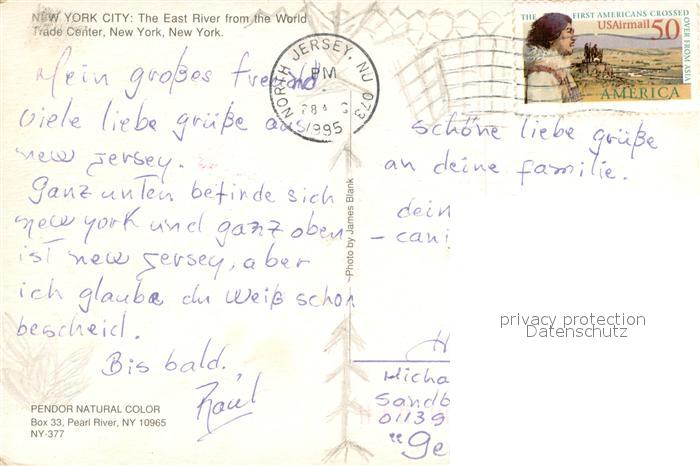 NEW YORK CITY: The East River from the World
Trade Center, New York, New York.
Mein großes Freund
Viele liebe grüße aus
new Jersey.
Ganz unten befinde sich
new york und ganz oben
ist new Jersey, aber
ich glaube du weiß schon
bescheid.
Bis bald,
Raúl
PENDOR NATURAL COLOR
Box 33, Pearl River, NY 10965
NY-377
Photo by James Blank
NORTH JERSEY, NJ 073
PM
1995
THE FIRST AMERICANS CROSSED OVER FROM ASIA
USAirmail 50
AMERICA
schöne liebe grüße
an deine familie.
dein
- cani
privacy protection
Datenschutz
H
Micha
Sandb
01139
"Ge